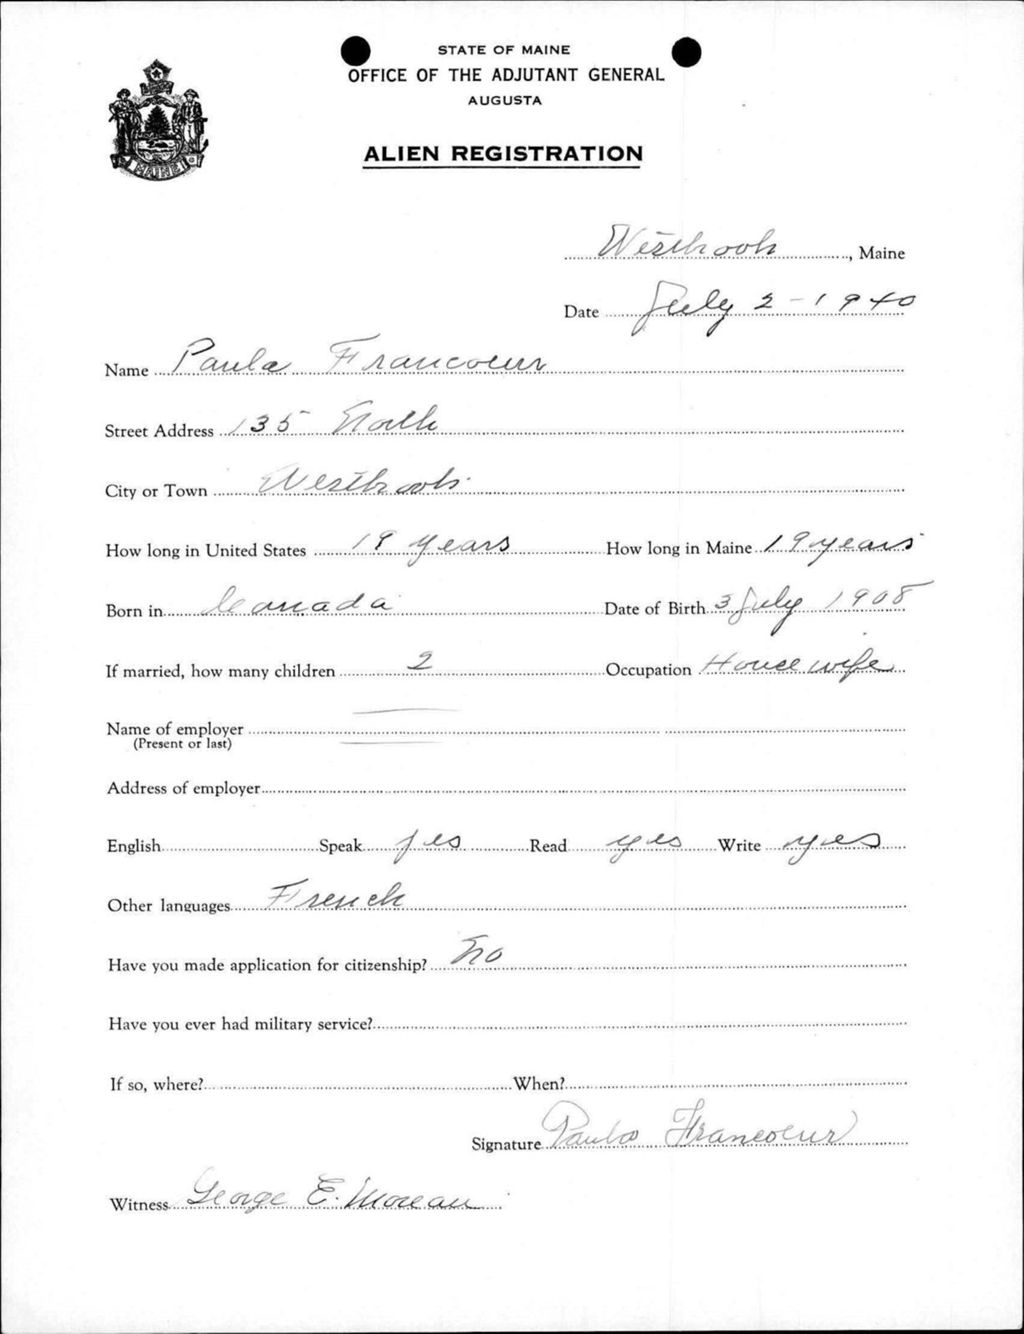 STATE OF MAINE
OFFICE OF THE ADJUTANT GENERAL
AUGUSTA
ALIEN REGISTRATION
MAINE
Westbrook, Maine
Date July 2-1940
Name Paula Francoeur
Street Address 135 North
City or Town Westbrook
How long in United States 19 years How long in Maine 19 years
Born in Canada Date of Birth 3 July 1908
If married, how many children 2 Occupation House wife
Name of employer
(Present or last)
Address of employer
English Speak yes Read yes Write yes
Other languages French
Have you made application for citizenship? No
Have you ever had military service?
If so, where? When?
Signature Paula Francoeur
Witness George E. Moreau